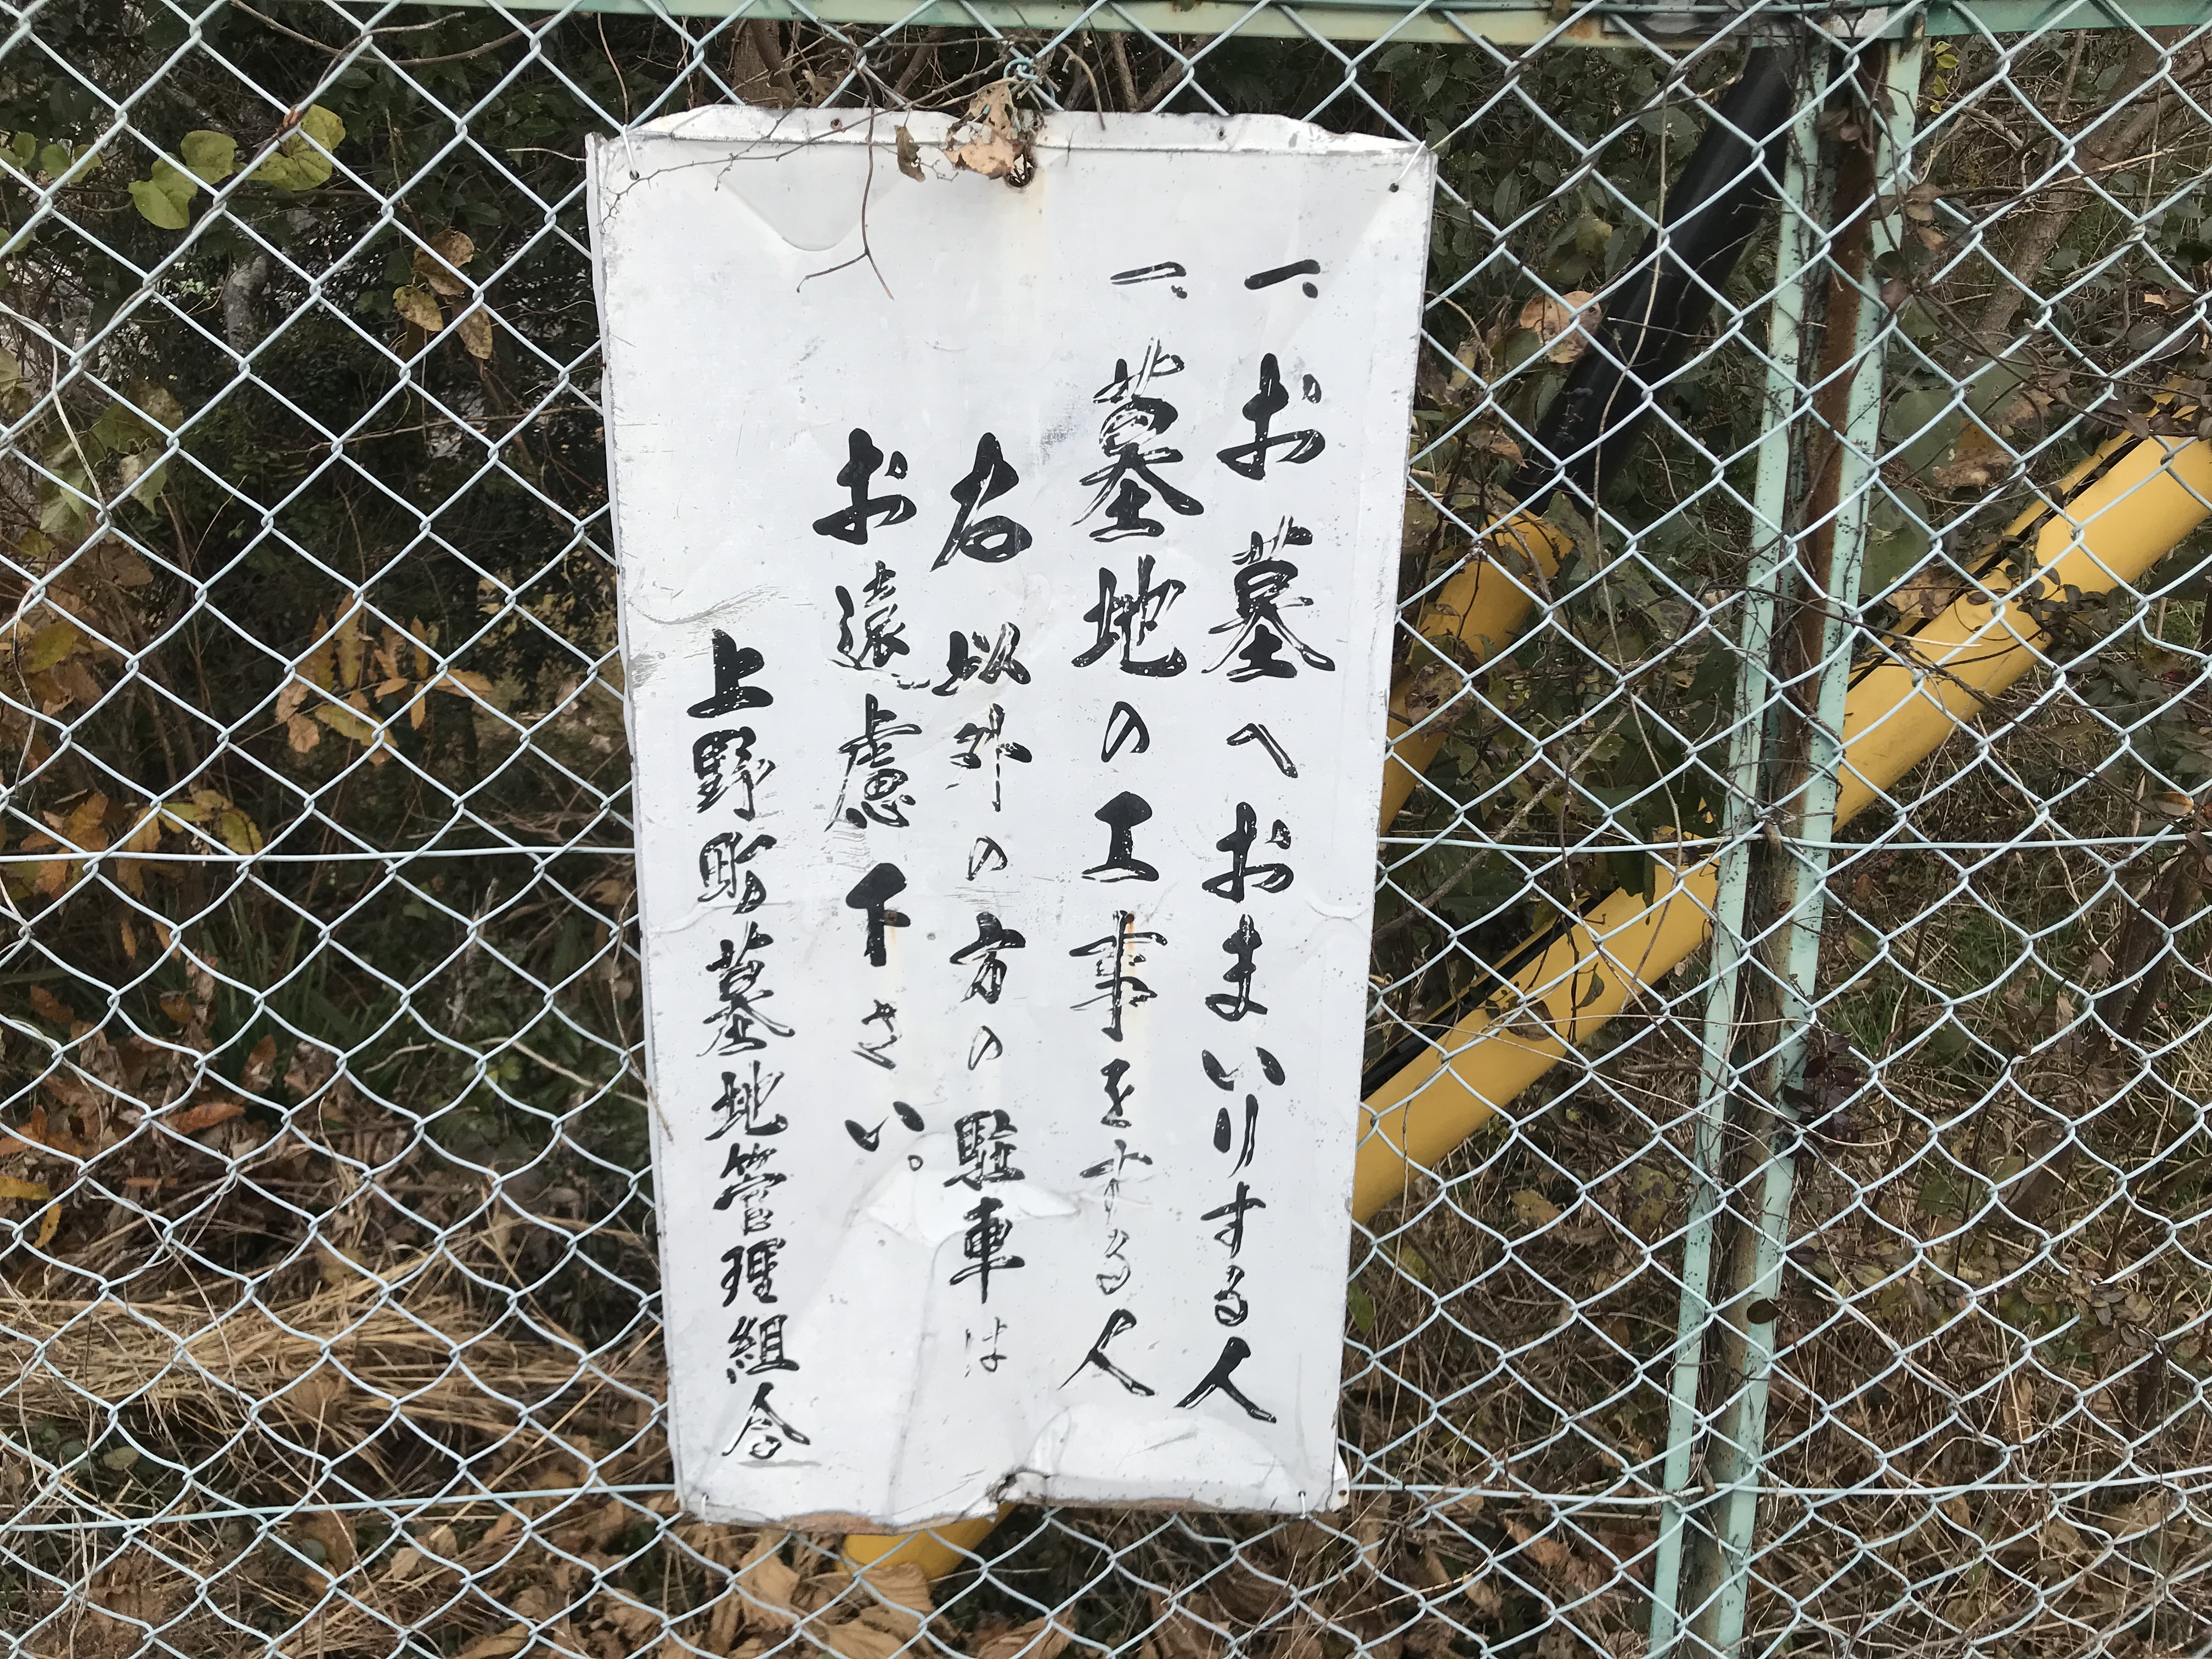 一、お墓へおまいりする人
一、墓地の工事をする人
右以外の方の駐車は
お遠慮下さい。
上野町墓地管理組合